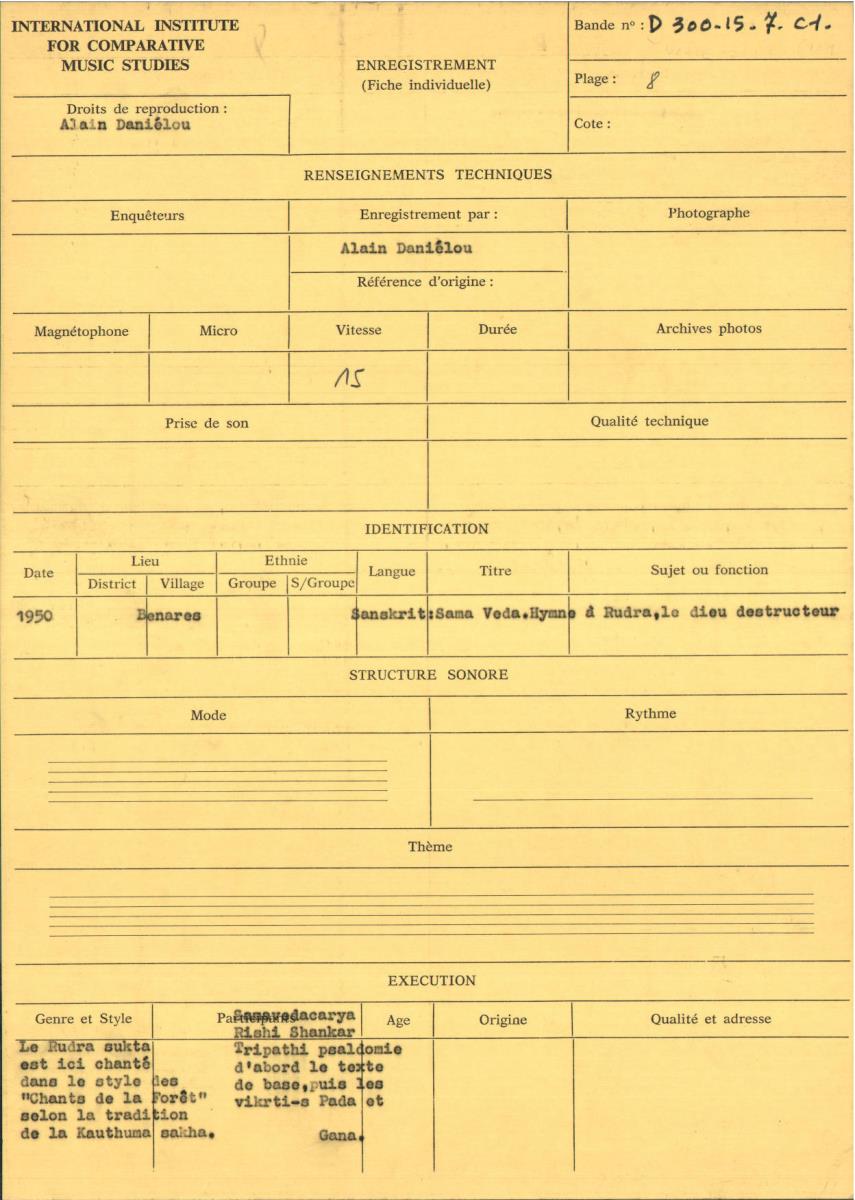 INTERNATIONAL INSTITUTE
FOR COMPARATIVE
MUSIC STUDIES
Droits de reproduction :
Alain Daniélou
ENREGISTREMENT
(Fiche individuelle)
Bande nº : D 300-15-7. C1.
Plage : 8
Cote :
RENSEIGNEMENTS TECHNIQUES
Enquêteurs
Enregistrement par :
Photographe
Alain Daniélou
Référence d'origine :
Magnétophone
Micro
Vitesse
Durée
Archives photos
15
Prise de son
Qualité technique
IDENTIFICATION
Date
Lieu
District
Village
Ethnie
Groupe
S/Groupe
Langue
Titre
Sujet ou fonction
1950
Benares
Sanskrit:Sama Veda.Hymne à Rudra,le dieu destructeur
STRUCTURE SONORE
Mode
Rythme
Thème
EXECUTION
Genre et Style
Participants
Age
Origine
Qualité et adresse
Le Rudra sukta
est ici chanté
dans le style des
"Chants de la Forêt"
selon la tradition
de la Kauthuma sakha.
Samavedacarya
Rishi Shankar
Tripathi psaldomie
d'abord le texte
de base,puis les
vikrti-s Pada et
Gana.